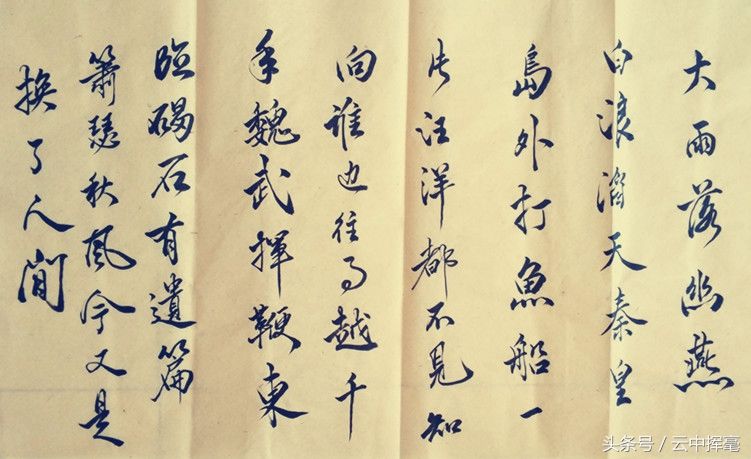 大雨落幽燕
白浪滔天秦皇
島外打魚船一
片汪洋都不見知
向誰边往事越千
年魏武揮鞭東
臨碣石有遺篇
蕭瑟秋風今又是
換了人间
头条号/云中挥毫